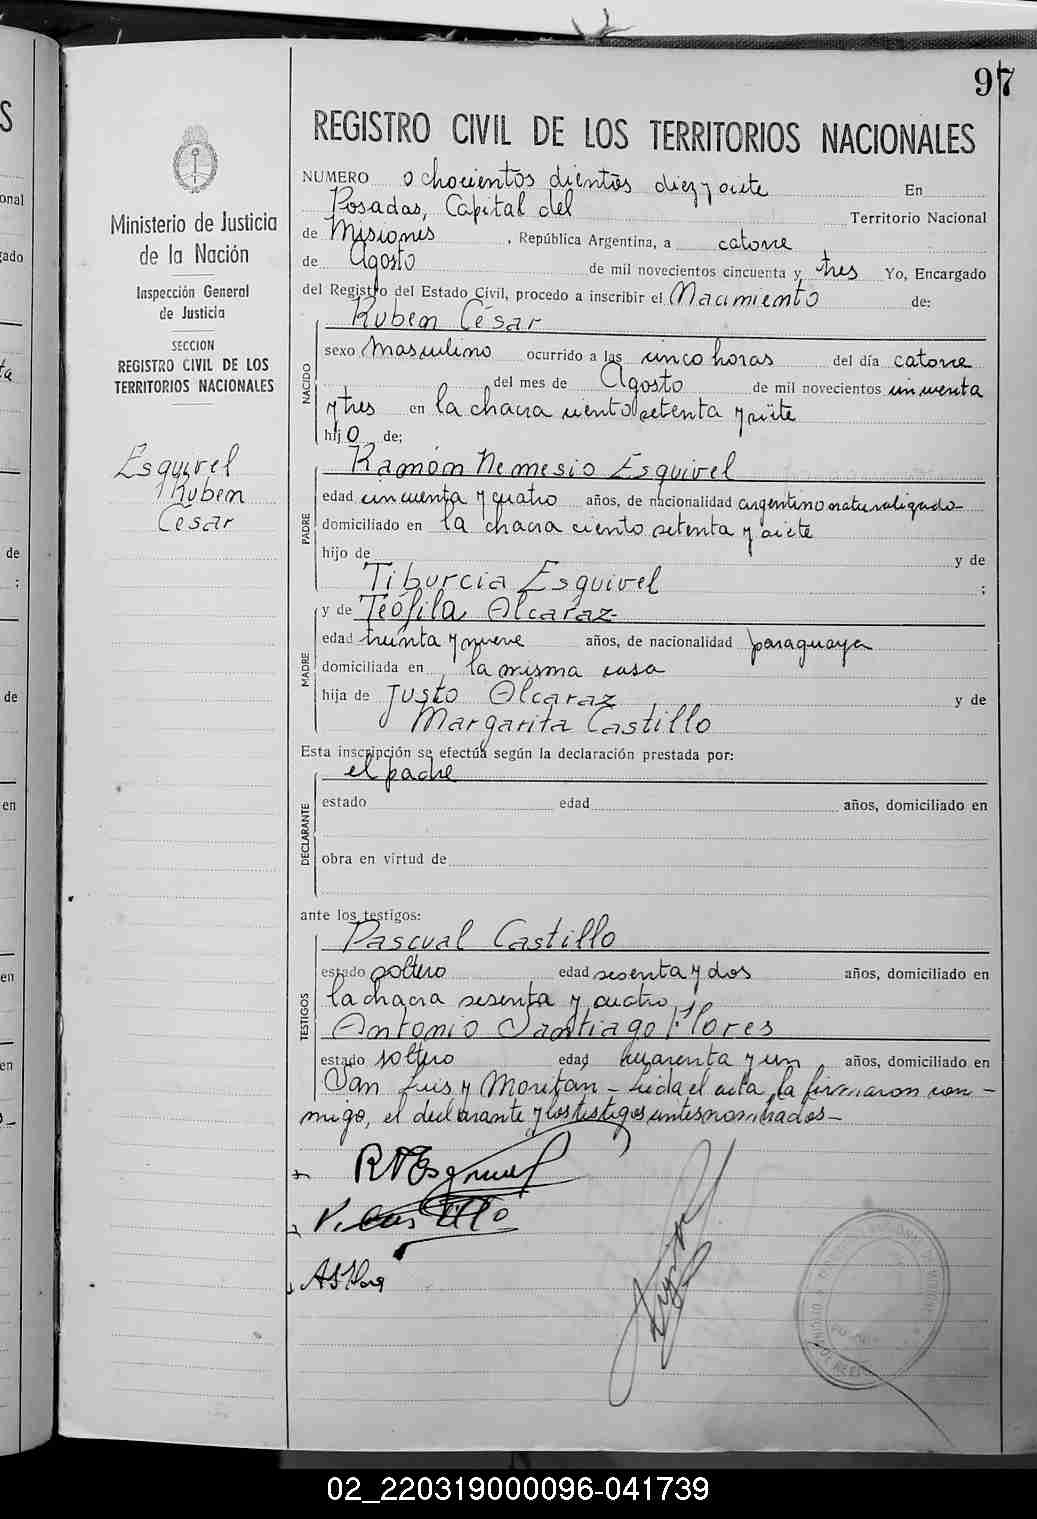 97
REGISTRO CIVIL DE LOS TERRITORIOS NACIONALES
Ministerio de Justicia
de la Nación
Inspección General
de Justicia
SECCION
REGISTRO CIVIL DE LOS
TERRITORIOS NACIONALES
Esquivel
Ruben
César
NUMERO ochocientos diez y siete En
Posadas, Capital del Territorio Nacional
de Misiones , República Argentina, a catorce
de Agosto de mil novecientos cincuenta y tres Yo, Encargado
del Registro del Estado Civil, procedo a inscribir el Nacimiento de:
NACIDO
Ruben César
sexo Masculino ocurrido a las cinco horas del día catorce
del mes de Agosto de mil novecientos cincuenta
y tres en la chacra ciento setenta y siete
hijo de;
PADRE
Ramón Nemesio Esquivel
edad cincuenta y cuatro años, de nacionalidad argentino naturalizado
domiciliado en la chacra ciento setenta y siete
hijo de y de
Tiburcia Esquivel ;
MADRE
y de Teófila Alcaraz
edad treinta y nueve años, de nacionalidad paraguaya
domiciliada en la misma casa
hija de Justo Alcaraz y de
Margarita Castillo
Esta inscripción se efectúa según la declaración prestada por:
DECLARANTE
el padre
estado edad años, domiciliado en
obra en virtud de
ante los testigos:
TESTIGOS
Pascual Castillo
estado soltero edad sesenta y dos años, domiciliado en
la chacra sesenta y cuatro
Antonio Santiago Flores
estado soltero edad cuarenta y un años, domiciliado en
San Luis y - Leida el acta, la firmaron con-
migo, el declarante y los testigos antes nombrados-
R N Esquivel
P. Castillo
02_220319000096-041739